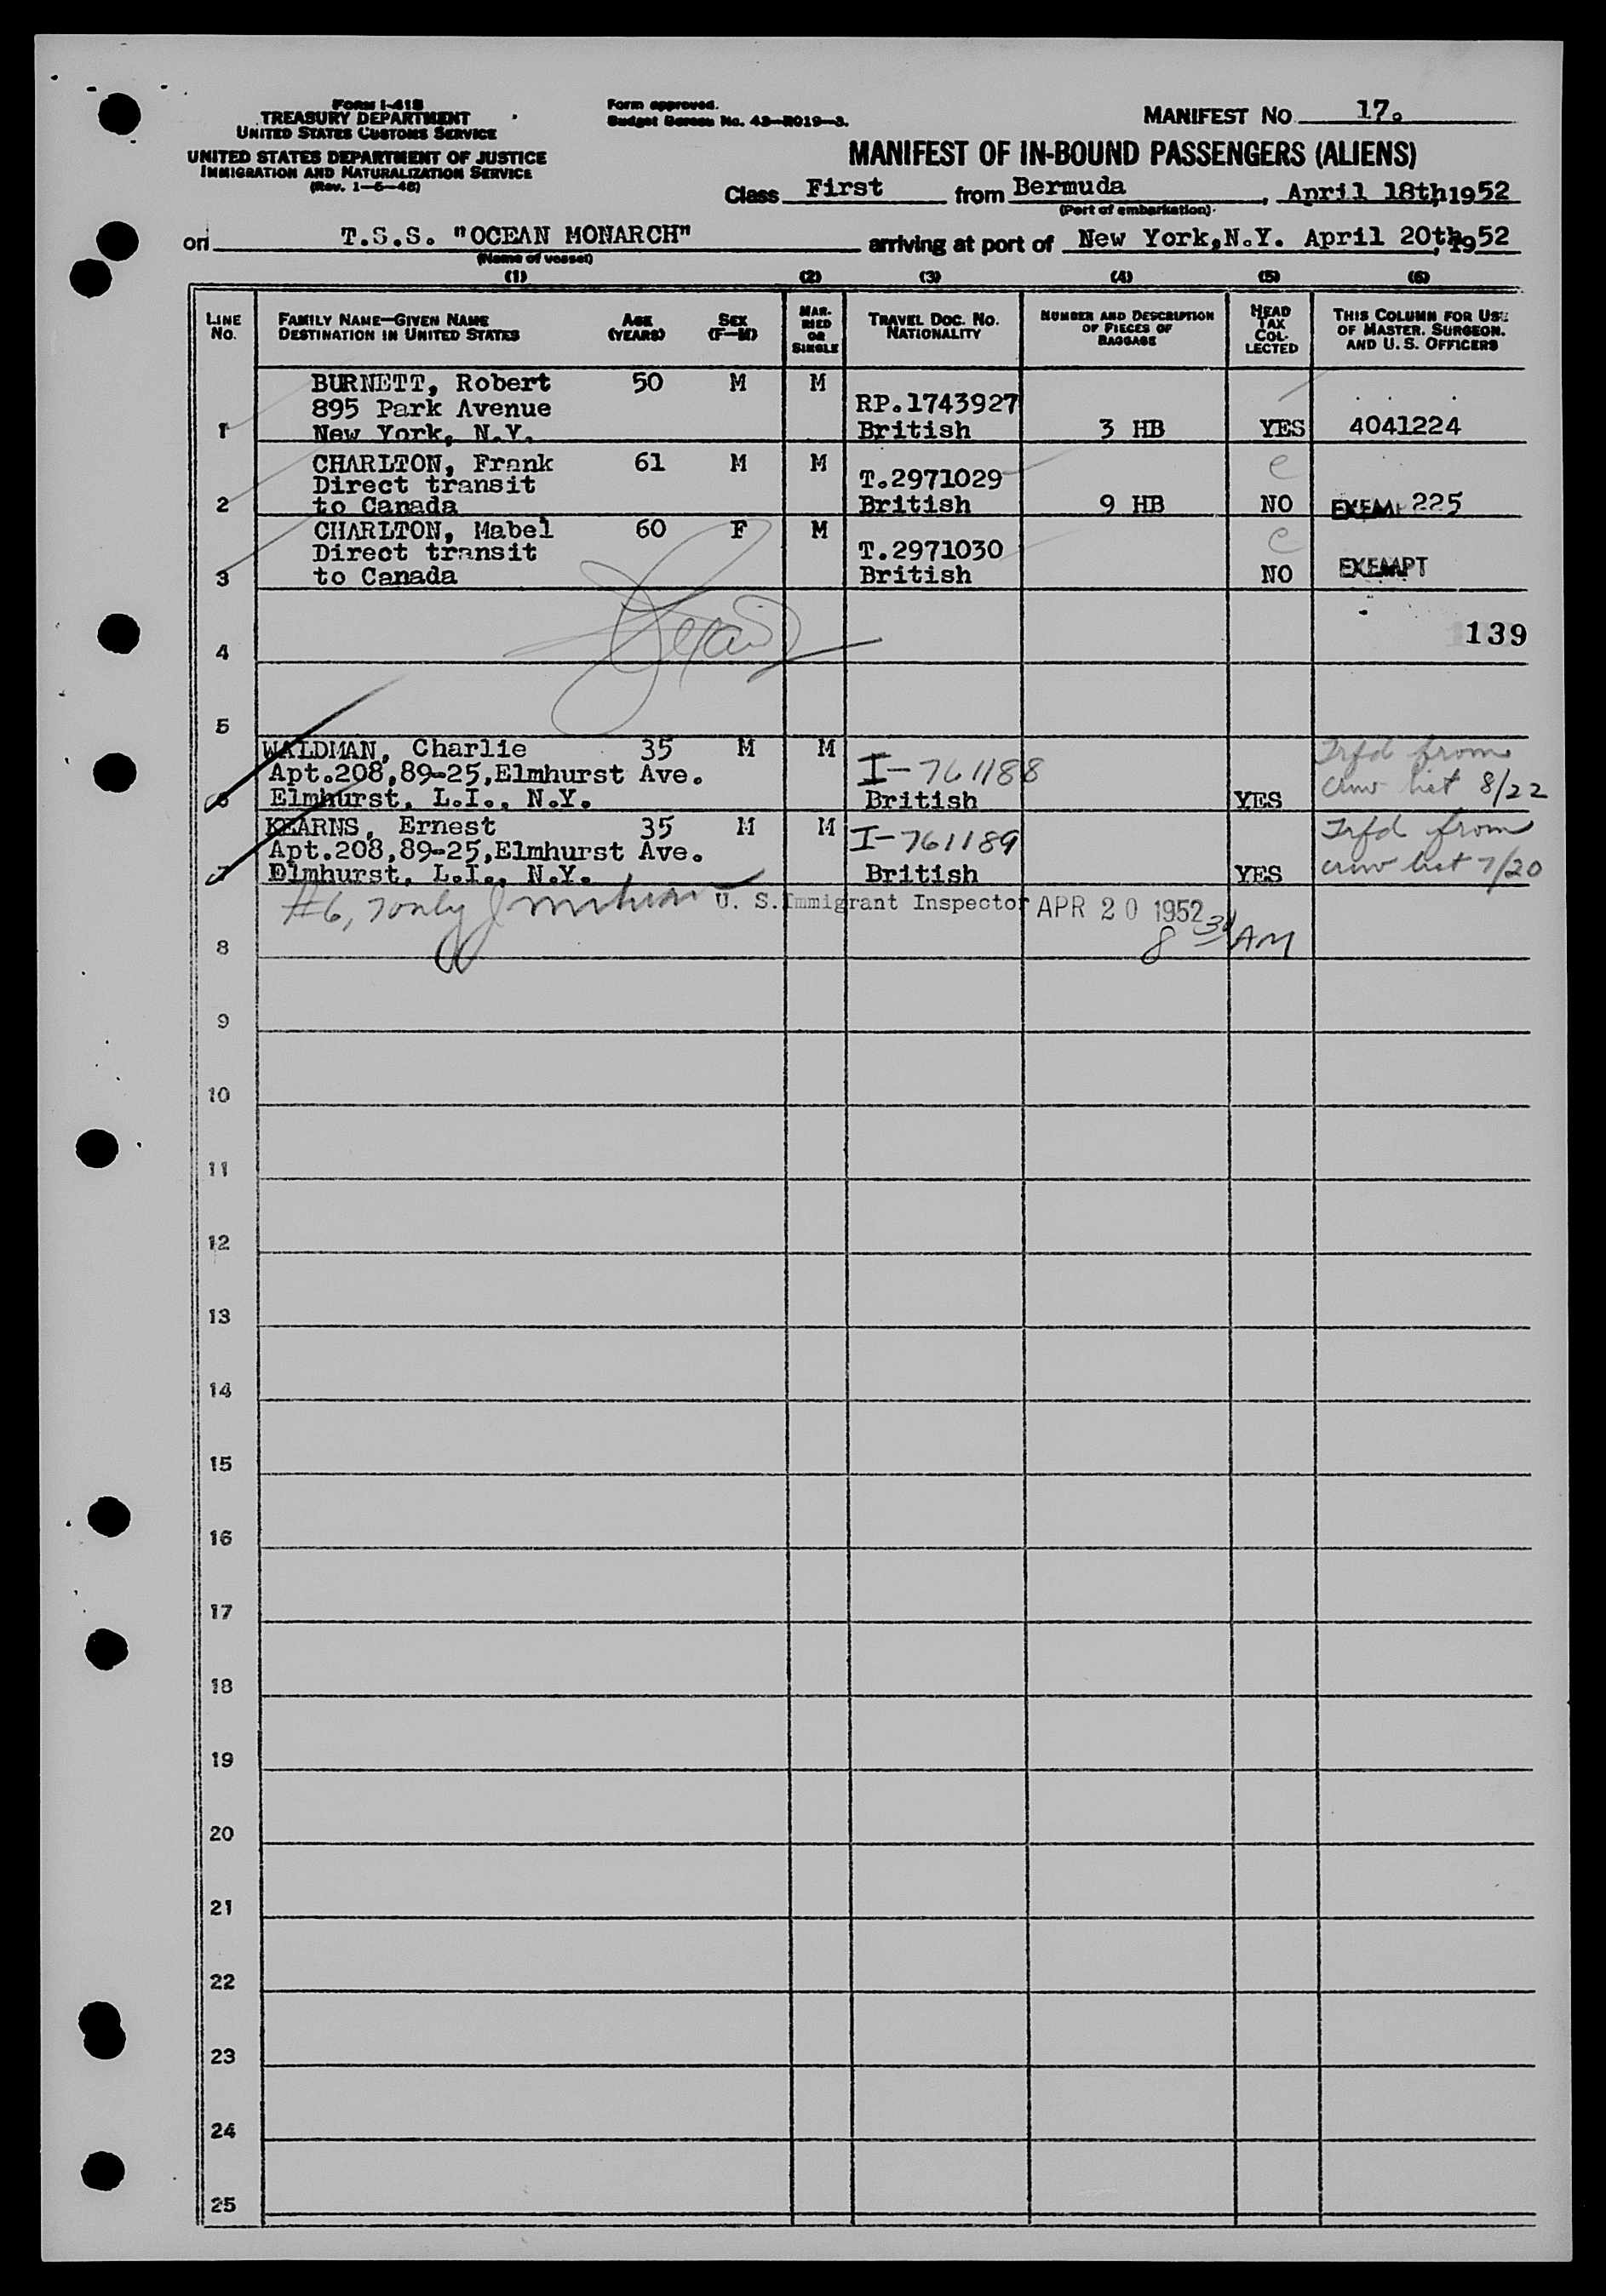 Form I-418
TREASURY DEPARTMENT
UNITED STATES CUSTOMS SERVICE
UNITED STATES DEPARTMENT OF JUSTICE
IMMIGRATION AND NATURALIZATION SERVICE
(Rev. 1-6-48)
Form approved.
Budget Bureau No. 43-R019-3.
MANIFEST NO 17.
MANIFEST OF IN-BOUND PASSENGERS (ALIENS)
Class First from Bermuda, April 18th, 1952
(Port of embarkation)
on T.S.S. "OCEAN MONARCH" arriving at port of New York, N.Y. April 20th, 1952
(Name of vessel)
(1) (2) (3) (4) (5) (6)
LINE NO. FAMILY NAME—GIVEN NAME DESTINATION IN UNITED STATES AGE (YEARS) SEX (F—M) MARRIED OR SINGLE TRAVEL DOC. NO. NATIONALITY NUMBER AND DESCRIPTION OF PIECES OF BAGGAGE HEAD TAX COLLECTED THIS COLUMN FOR USE OF MASTER, SURGEON, AND U.S. OFFICERS
BURNETT, Robert 50 M M
895 Park Avenue RP.1743927
1 New York, N.Y. British 3 HB YES 4041224
CHARLTON, Frank 61 M M
Direct transit T.2971029
2 to Canada British 9 HB NO 225
CHARLTON, Mabel 60 F M
Direct transit T.2971030
3 to Canada British NO EXEMPT
139
4
5
WALDMAN, Charlie 35 M M Trfd from
Apt.208,89-25,Elmhurst Ave. I-761188 crew list 8/22
6 Elmhurst, L.I., N.Y. British YES
KEARNS, Ernest 35 M M Trfd from
Apt.208,89-25,Elmhurst Ave. I-761189 crew list 7/20
7 Elmhurst, L.I., N.Y. British YES
#6, 7 only U. S. Immigrant Inspector APR 20 1952
8 8 30 AM
9
10
11
12
13
14
15
16
17
18
19
20
21
22
23
24
25